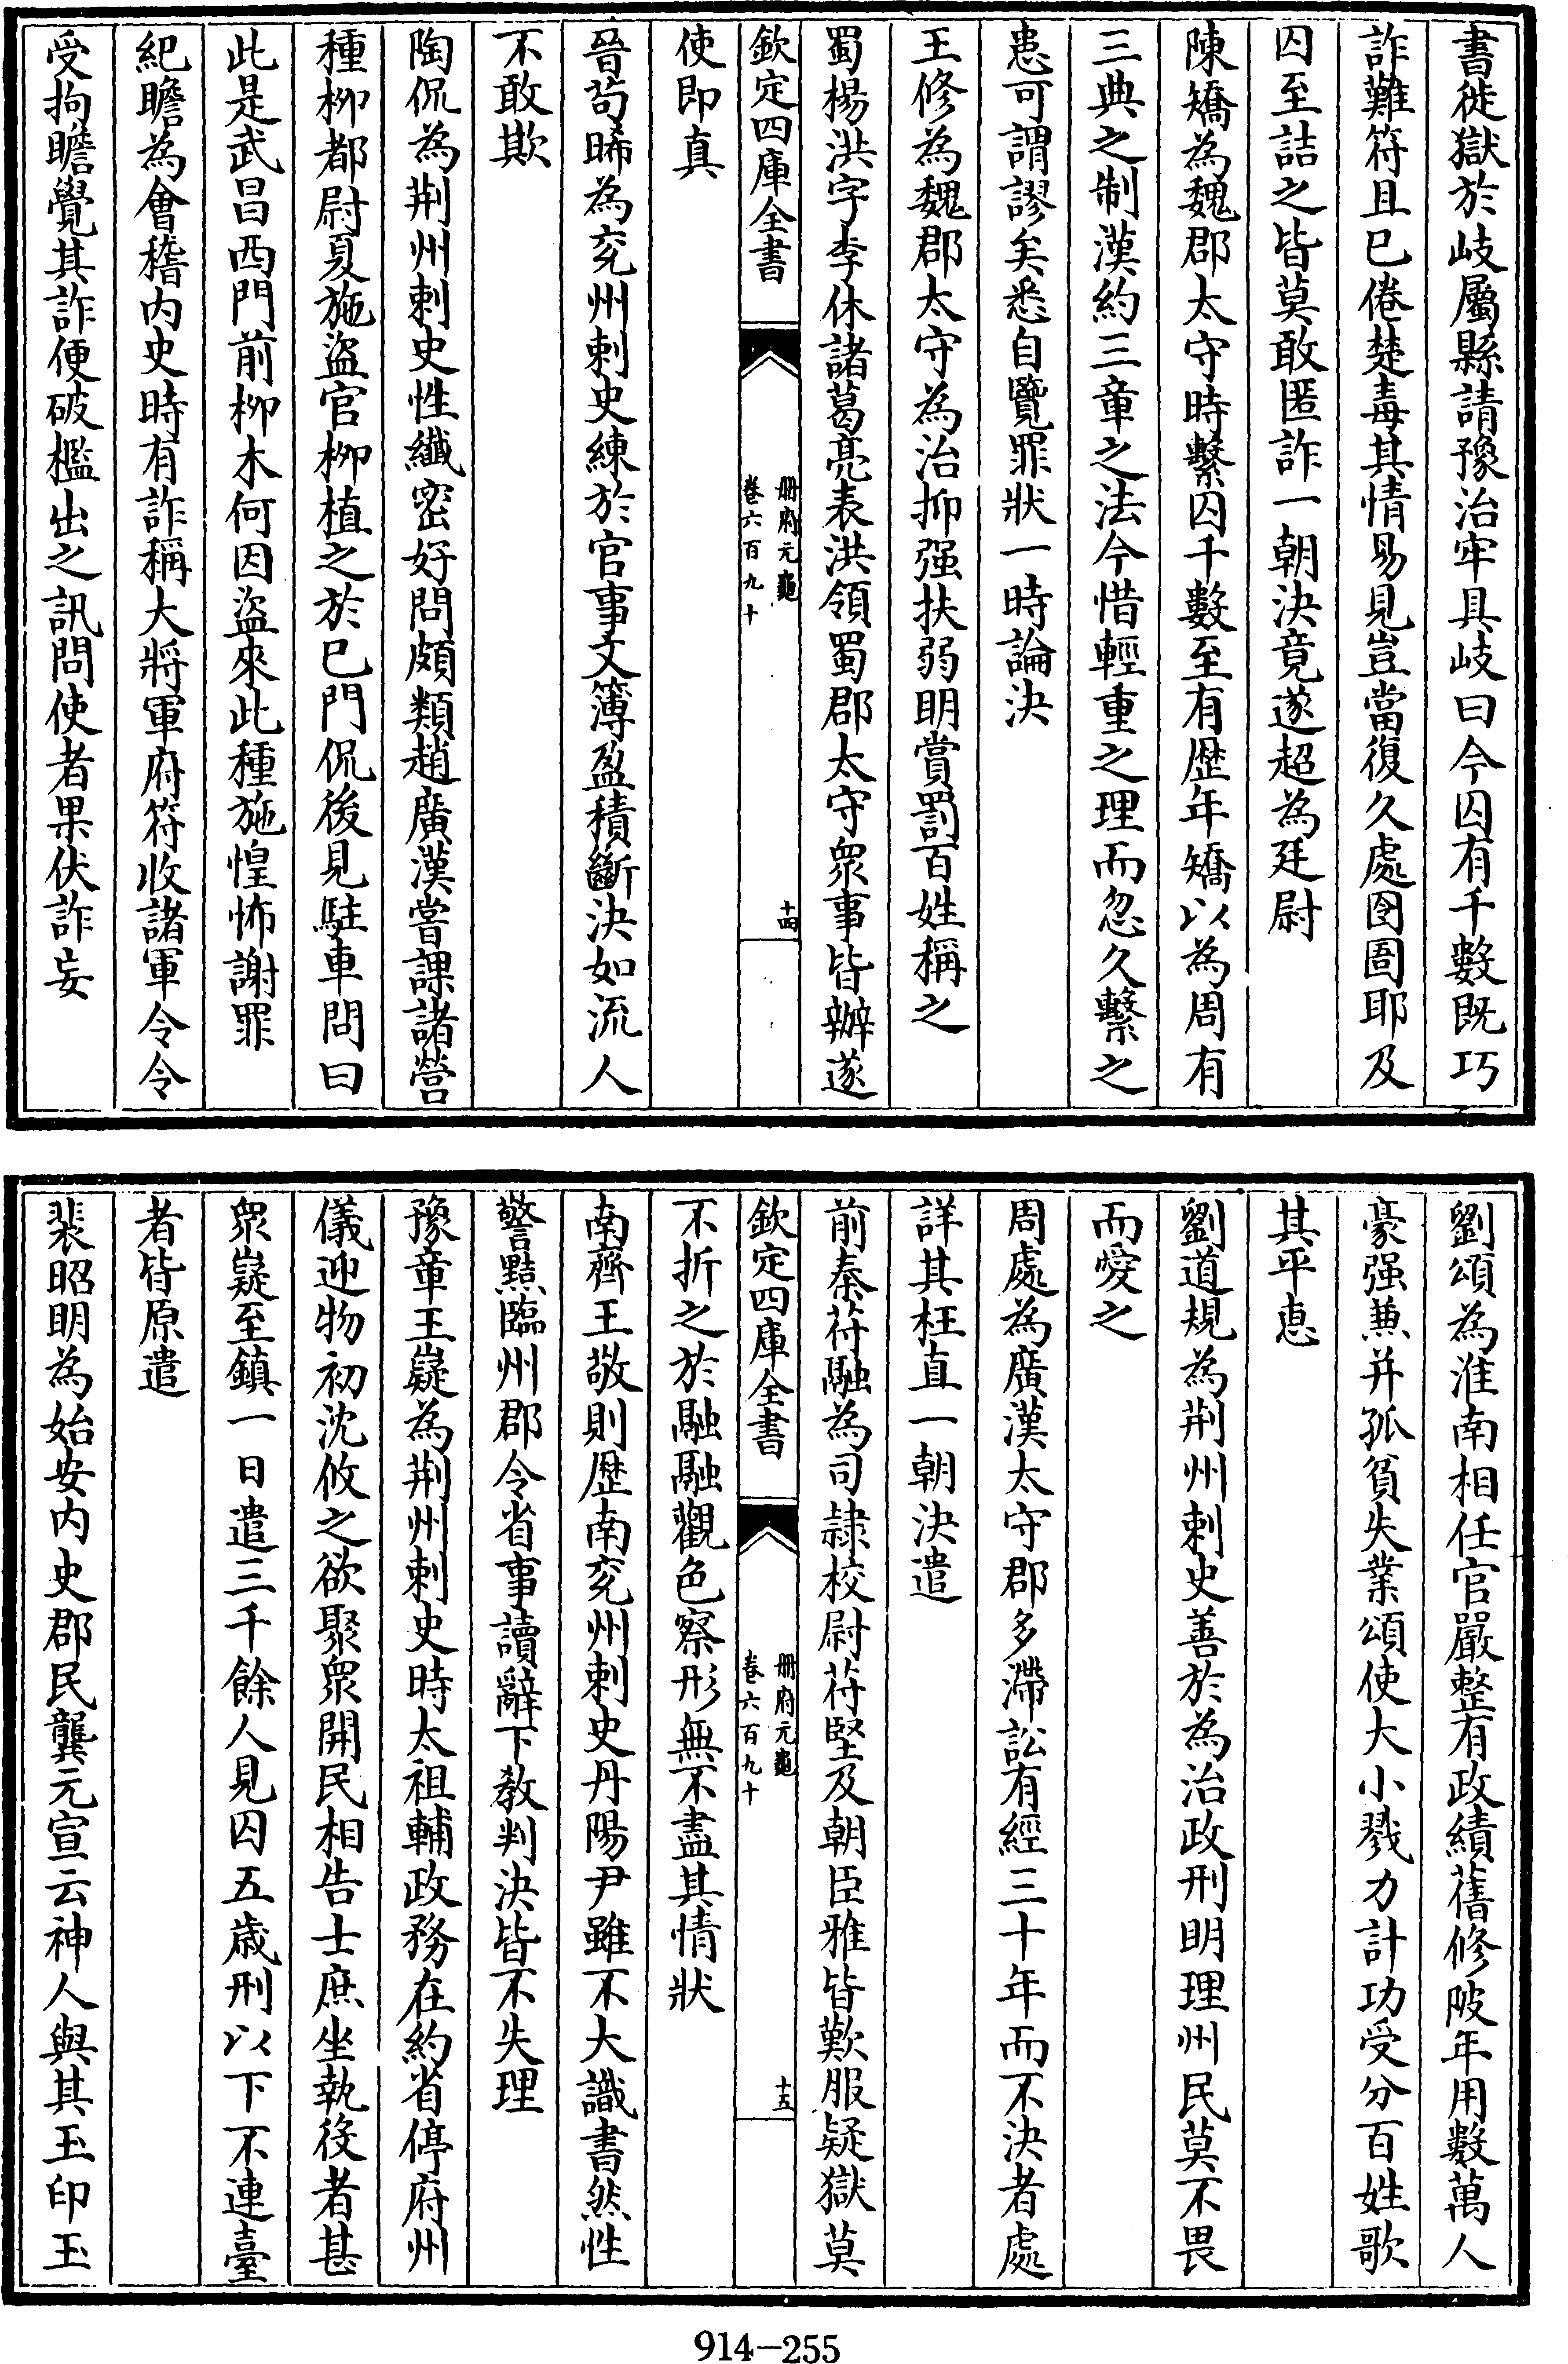 書徙獄於岐屬縣請豫治牢具岐曰今囚有千數既巧
詐難符且已倦楚毒其情易見豈當復久處囹圄耶及
囚至詰之皆莫敢匿詐一朝決竟遂超為廷尉
陳矯為魏郡太守時繫囚千數至有歴年矯以為周有
三典之制漢約三章之法今惜輕重之理而忽久繫之
患可謂謬矣悉自覽罪狀一時論決
王修為魏郡太守為治抑强扶弱明賞罰百姓稱之
蜀楊洪字季休諸葛亮表洪領蜀郡太守衆事皆辦遂
欽定四庫全書
冊府元龜
卷六百九十
十四
使即真
晉茍晞為兖州刺史練於官事文簿盈積斷決如流人
不敢欺
陶侃為荆州刺史性纎密好問頗類趙廣漢嘗課諸營
種柳都尉夏施盜官柳植之於已門侃後見駐車問曰
此是武昌西門前柳木何因盜來此種施惶怖謝罪
紀瞻為會稽内史時有詐稱大將軍府符收諸軍令令
受拘瞻覺其詐便破檻出之訊問使者果伏詐妄
劉頌為淮南相任官嚴整有政績舊修陂年用數萬人
豪强兼并孤貧失業頌使大小戮力計功受分百姓歌
其平恵
劉道規為荆州刺史善於為治政刑明理州民莫不畏
而愛之
周處為廣漢太守郡多滯訟有經三十年而不決者處
詳其枉直一朝決遣
前秦苻融為司隷校尉苻堅及朝臣雅皆歎服疑獄莫
欽定四庫全書
冊府元龜
卷六百九十
十五
不折之於融融觀色察形無不盡其情狀
南齊王敬則歴南兖州刺史丹陽尹雖不大識書然性
警黠臨州郡令省事讀辭下教判決皆不失理
豫章王嶷為荆州刺史時太祖輔政務在約省停府州
儀迎物初沈攸之欲聚衆開民相告士庶坐執役者甚
衆嶷至鎮一日遣三千餘人見囚五歳刑以下不連臺
者皆原遣
裴昭明為始安内史郡民龔元宣云神人與其玉印玉
914-255